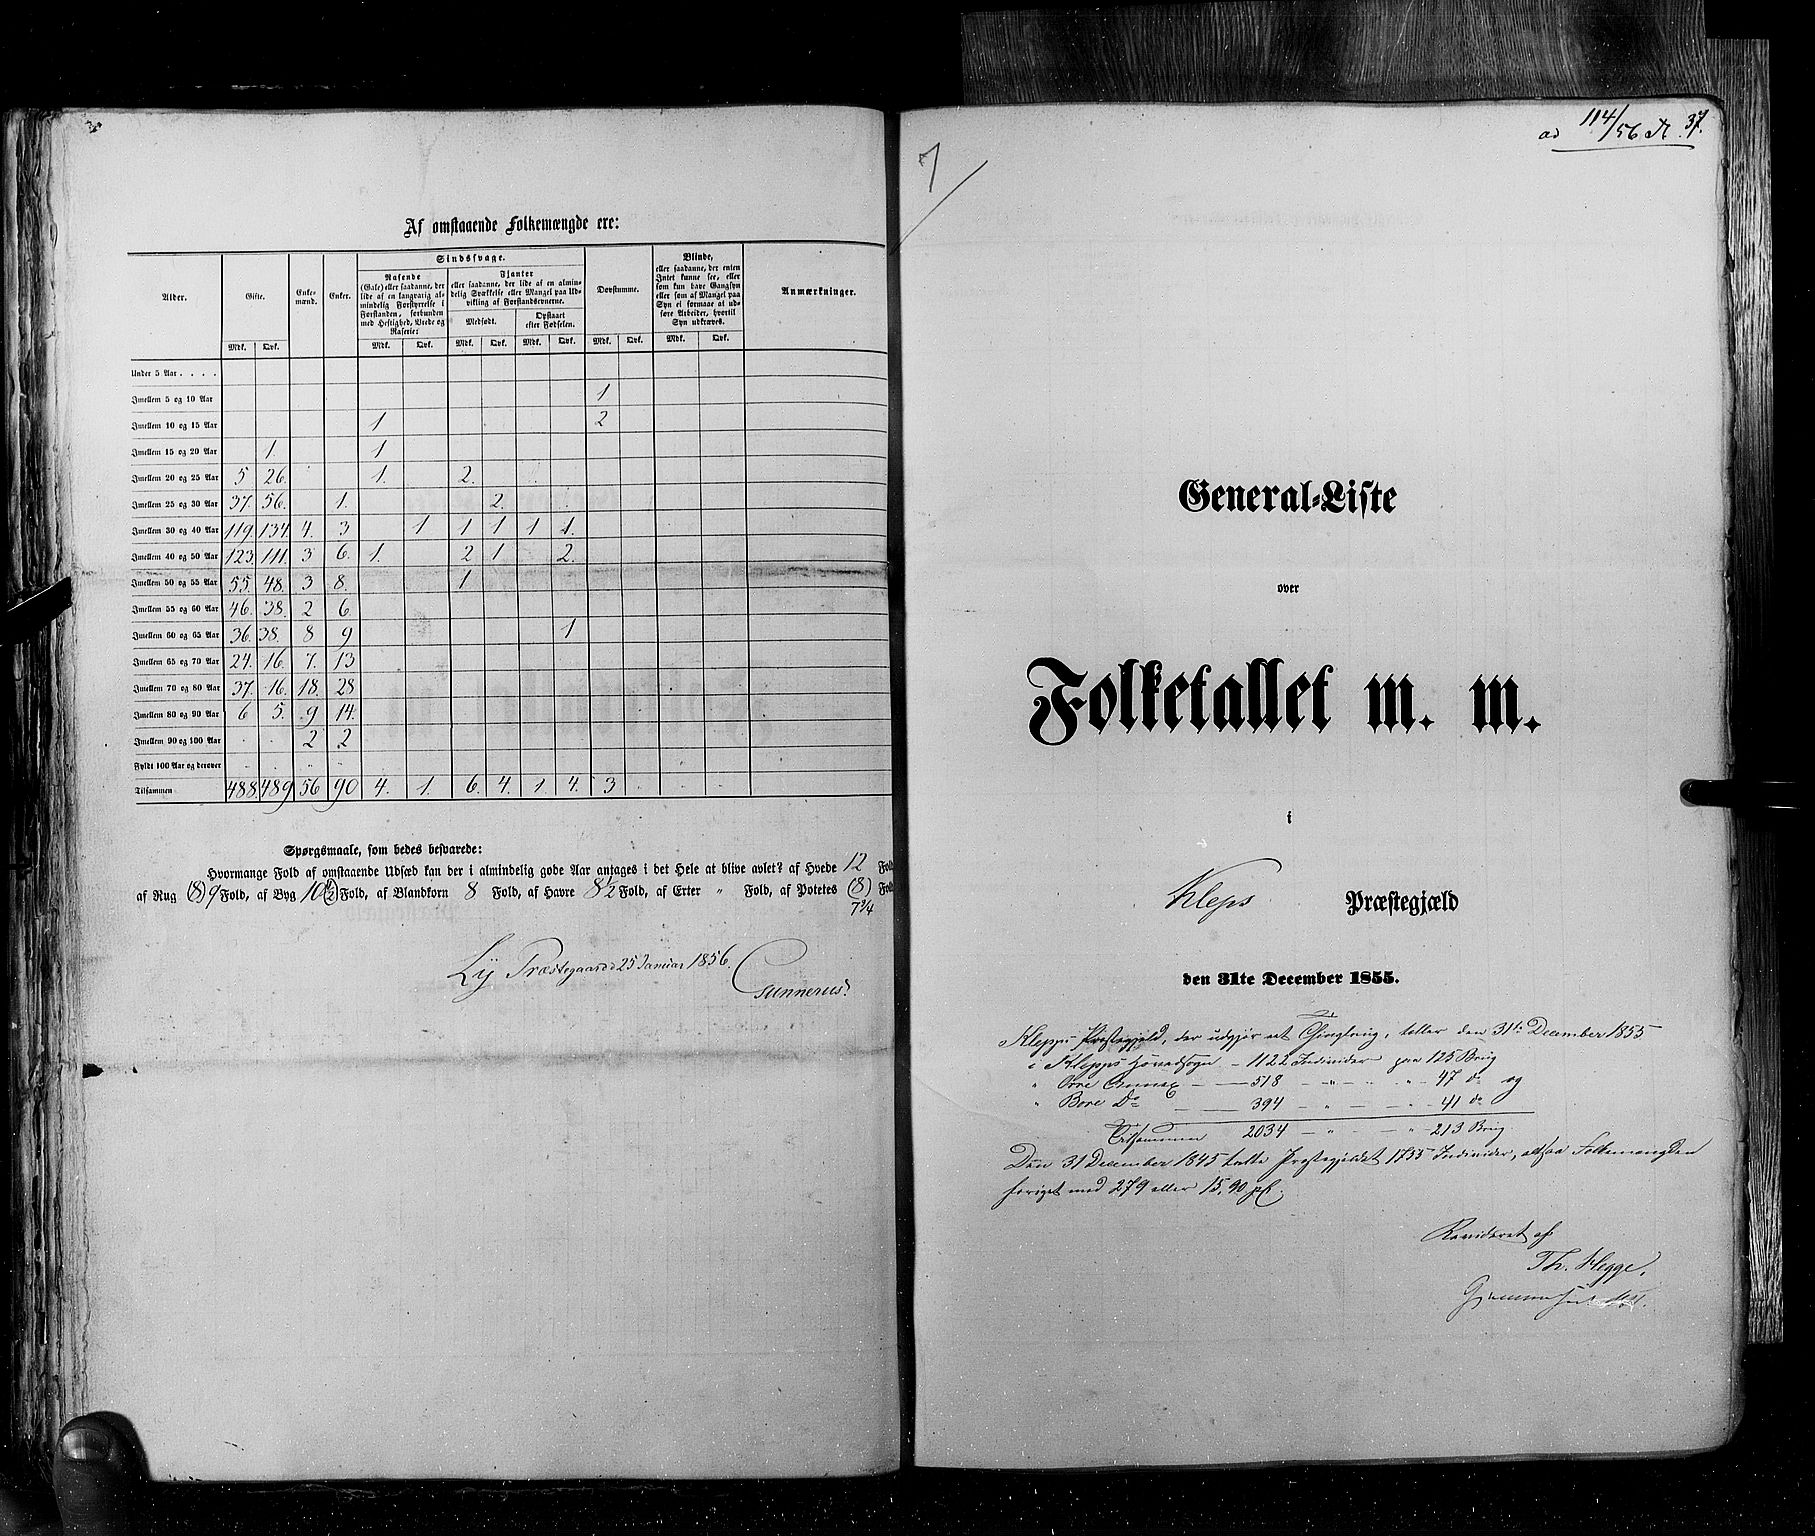 Af omstaaende Folkemængde ere:
Alder. Gifte. Enkemænd. Enker. Sindssvage. Døvstumme. Blinde, eller saadanne, der enten Intet kunne see, eller som kun have Gangsyn eller som af Mangel paa Syn ei formaae at udføre Arbeider, hvortil Syn udkræves. Anmærkninger.
Rasende (Gale) eller saadanne, der lide af en langvarig almindelig Forstyrrelse i Forstanden, forbunden med Heftighed, Vrede og Raserie:
Fjanter eller saadanne, der lide af en almindelig Svækkelse eller Mangel paa Udvikling af Forstandsevnerne.
Medfødt. Opstaaet efter Fødselen.
Mdk. Qvk. Mdk. Qvk. Mdk. Qvk. Mdk. Qvk. Mdk. Qvk. Mdk. Qvk.
Under 5 Aar . . . .
Imellem 5 og 10 Aar 1
Imellem 10 og 15 Aar 1 2
Imellem 15 og 20 Aar 1. 1
Imellem 20 og 25 Aar 5 26. 1. 2.
Imellem 25 og 30 Aar 37. 56. 1. 2.
Imellem 30 og 40 Aar 119. 134. 4. 3 1 1 1 1 1.
Imellem 40 og 50 Aar 123. 111. 3 6. 1. 2 1 2.
Imellem 50 og 55 Aar 55. 48. 3 8. 1
Imellem 55 og 60 Aar 46. 38. 2 6
Imellem 60 og 65 Aar 36. 38. 8 9 1
Imellem 65 og 70 Aar 24. 16. 7. 13
Imellem 70 og 80 Aar 37. 16. 18. 28
Imellem 80 og 90 Aar 6 5. 9 14.
Imellem 90 og 100 Aar 2 2
Fyldt 100 Aar og derover
Tilsammen 488. 489 56 90 4. 1. 6. 4. 1. 4. 3
Spørgsmaale, som bedes besvarede:
Hvormange Fold af omstaaende Udsæd kan der i almindelig gode Aar antages i det Hele at blive avlet? af Hvede 12 Fold
af Rug (8) 9 Fold, af Byg 10 (½) Fold, af Blandkorn 8 Fold, af Havre 8½ Fold, af Erter " Fold, af Potetes (8) Fold
7¾
Ly Præstegaard 25 Januar 1856.
Gunnerus.
ad 114/56 A. 37.
7
General-Liste
over
Folketallet m. m.
i
Kleps Præstegjæld
den 31te December 1855.
Klepps Præstegjeld, der udgjør eet Thinglaug, tæller den 31te December 1855
i Klepps Hovedsogn – 1122 Individer paa 125 Brug
" Orre Annex – 518 – " – " – 47 do og
" Bore Do – 394 – " – " – 41 do
Tilsammen 2034 – " – " – 213 Brug
Den 31 December 1845 talte Præstegjeldet 1755 Individer, altsaa Folkemængden
forøget med 279 eller 15,90 pCt.
Revideret af
Th. Hegge.